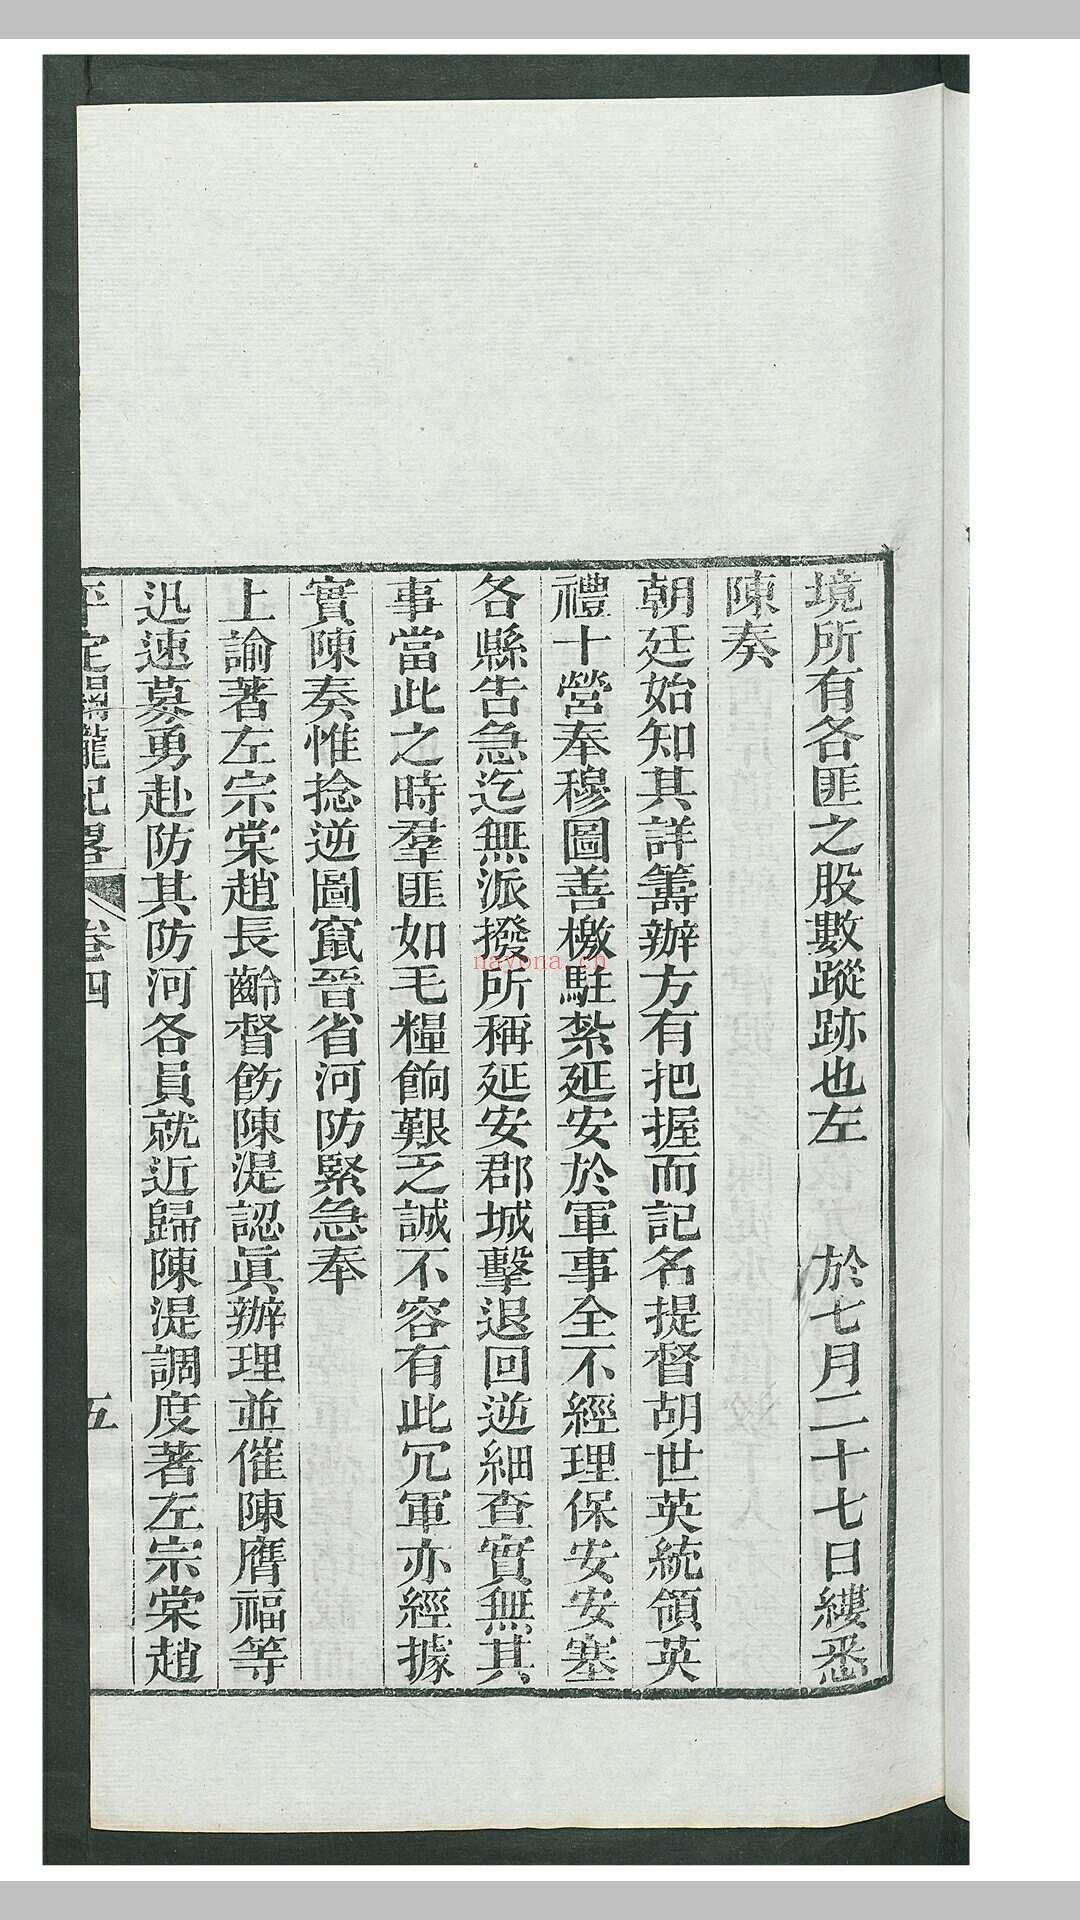 境所有各匪之股數蹤跡也左　於七月二十七日縷悉
陳奏
朝廷始知其詳籌辦方有把握而記名提督胡世英統領英
禮十營奉穆圖善檄駐紮延安於軍事全不經理保安安塞
各縣告急迄無派撥所稱延安郡城擊退回逆細查實無其
事當此之時羣匪如毛糧餉艱乏誠不容有此冗軍亦經據
實陳奏惟捻逆圖竄晉省河防緊急奉
上諭著左宗棠趙長齡督飭陳湜認眞辦理並催陳膺福等
迅速募勇赴防其防河各員就近歸陳湜調度著左宗棠趙
平定關隴紀畧　卷四　五
nayona.cn